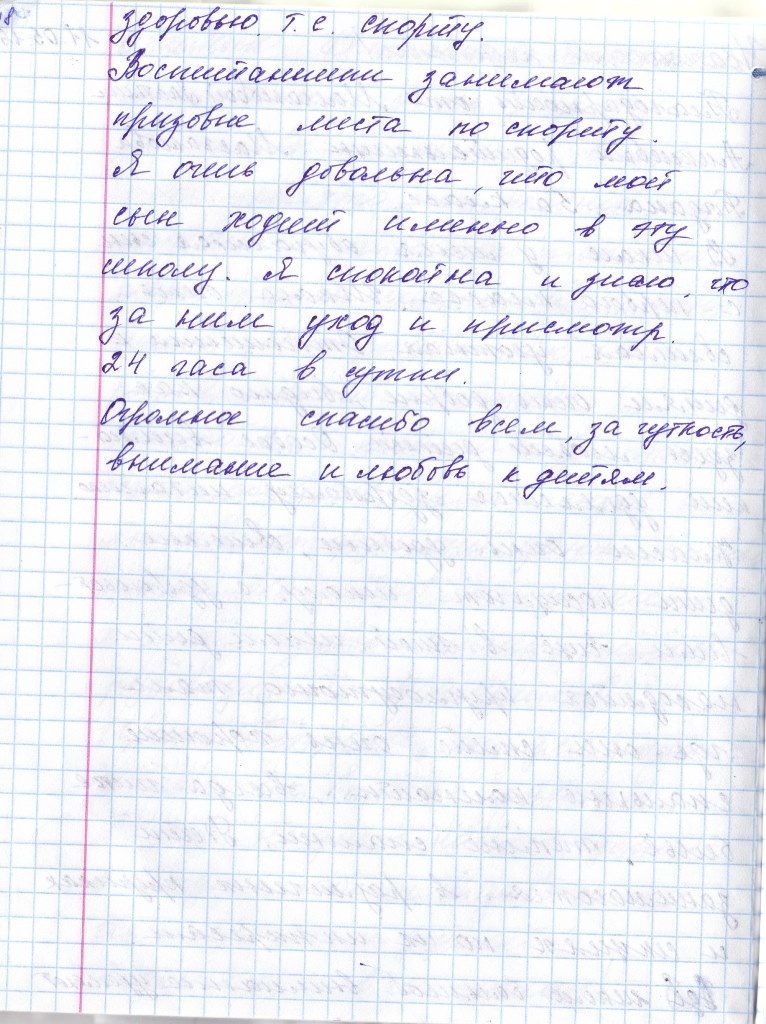 здоровью. т.е. спорту.
Воспитанники занимают
призовые места по спорту.
Я очень довольна, что мой
сын ходит именно в эту
школу. Я спокойна и знаю, что
за ним уход и присмотр.
24 часа в сутки.
Огромное спасибо всем, за чуткость,
внимание и любовь к детям.